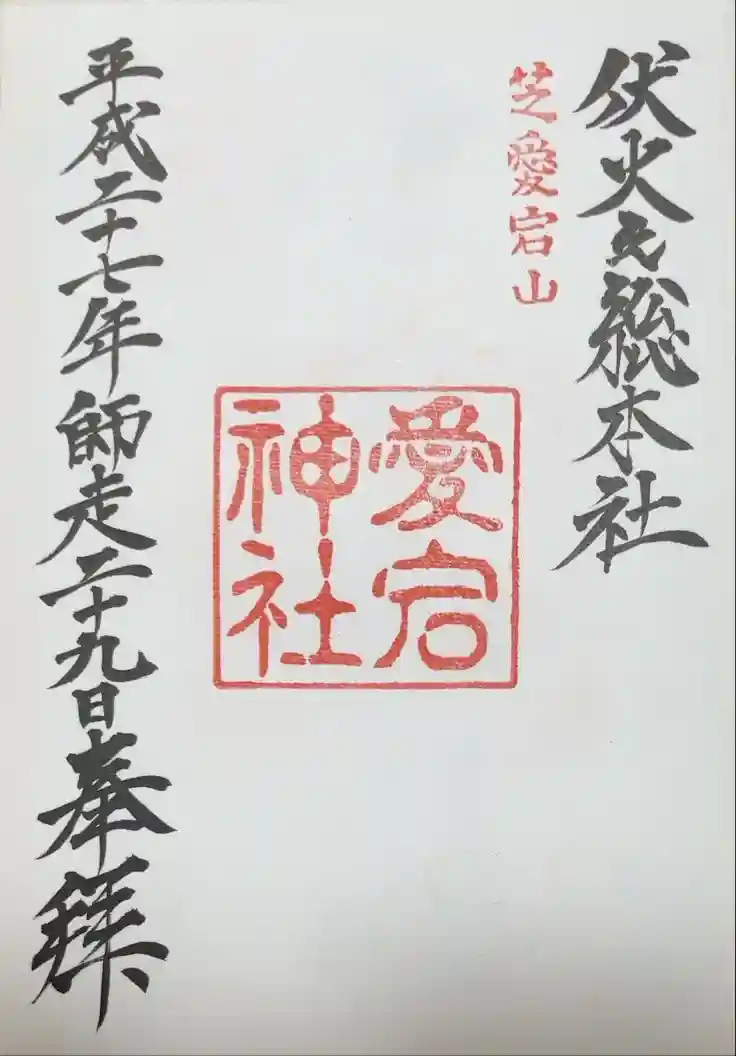 伏火之総本社
芝愛宕山
愛宕
神社
平成二十七年師走二十九日奉拝